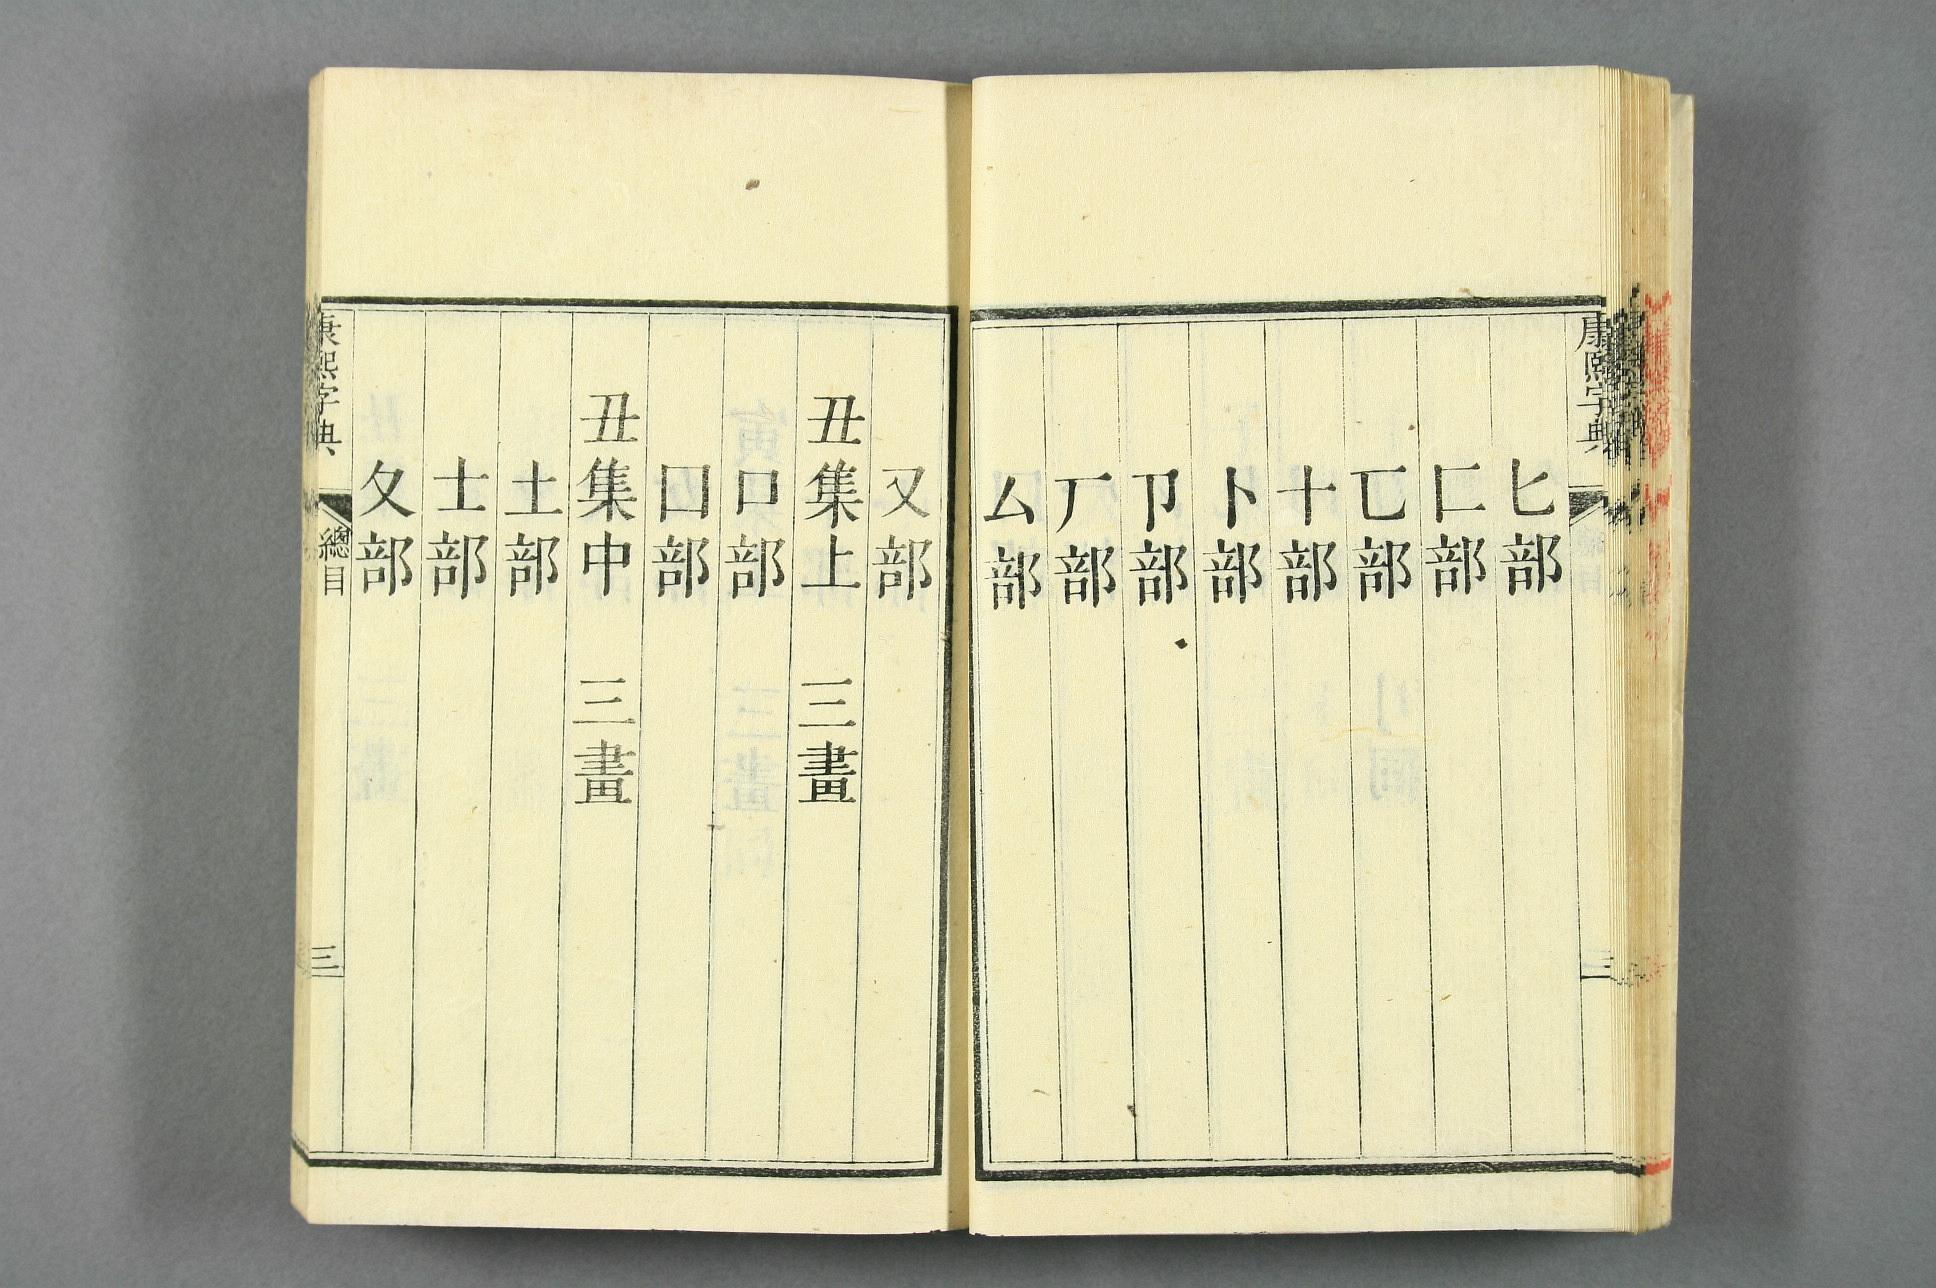 康熙字典
二
匕部
匚部
匸部
十部
卜部
卩部
厂部
厶部
又部
丑集上 三畫
口部
囗部
丑集中 三畫
土部
士部
夂部
康熙字典
總目
三